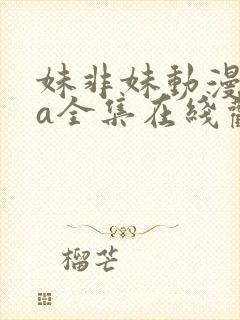 妹非妹動漫
a全集在綫
榴芒